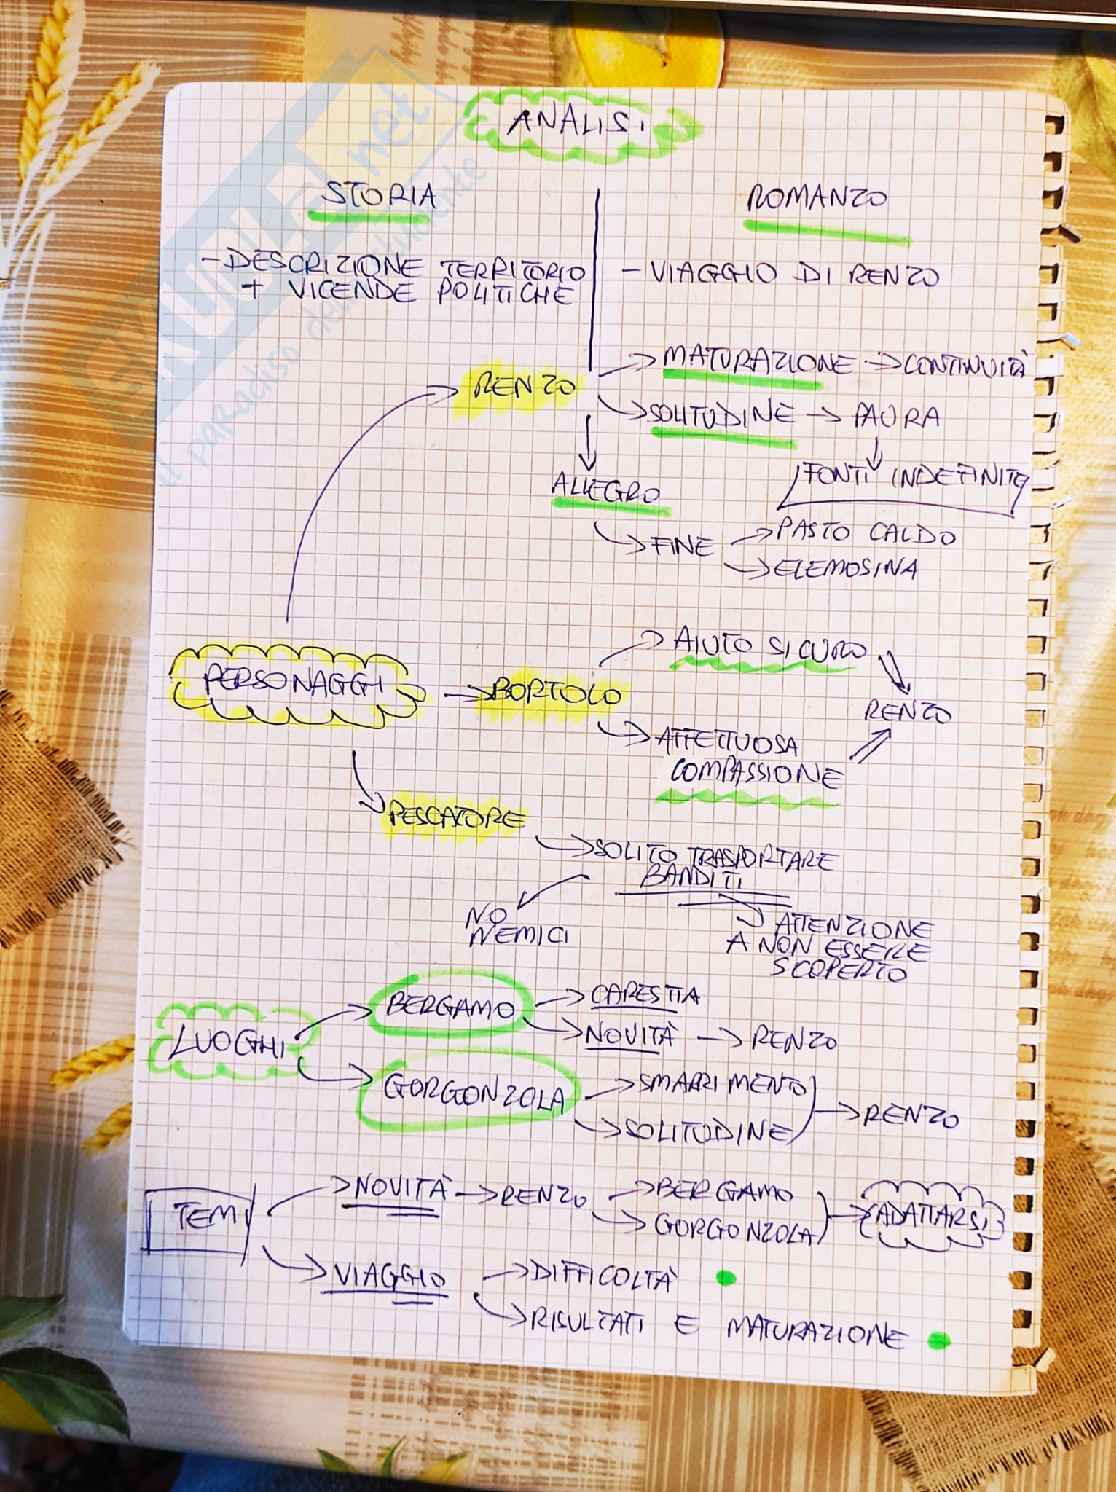 ANALISI
STORIA
- DESCRIZIONE TERRITORIO
+ VICENDE POLITICHE
ROMANZO
- VIAGGIO DI RENZO
RENZO
→ MATURAZIONE → CONTINUITÀ
→ SOLITUDINE → PAURA
FONTI INDEFINITE
ALLEGRO
→ FINE → PASTO CALDO
→ ELEMOSINA
PERSONAGGI → BORTOLO
→ AIUTO SICURO
→ AFFETTUOSA
COMPASSIONE
RENZO
PESCATORE
→ SOLITO TRASPORTARE
BANDITI
NO
NEMICI
→ ATTENZIONE
A NON ESSERE
SCOPERTO
LUOGHI
BERGAMO → CARESTIA
→ NOVITÀ → RENZO
GORGONZOLA → SMARRIMENTO
→ SOLITUDINE
→ RENZO
TEMI
→ NOVITÀ → RENZO → BERGAMO
→ GORGONZOLA
→ ADATTARSI
→ VIAGGIO → DIFFICOLTÀ
→ RISULTATI E MATURAZIONE
SKUOLA.net
il paradiso dello studente